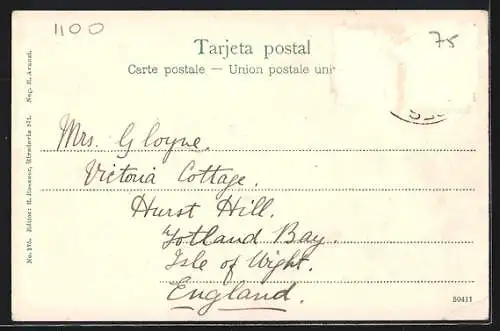 1100
75
Tarjeta postal
Carte postale — Union postale uni
Mrs. Gloyne.
Victoria Cottage.
Hurst Hill.
Totland Bay.
Isle of Wight.
England.
50411
No. 175. Editor: R. Rosauer, Rivadavia 571.